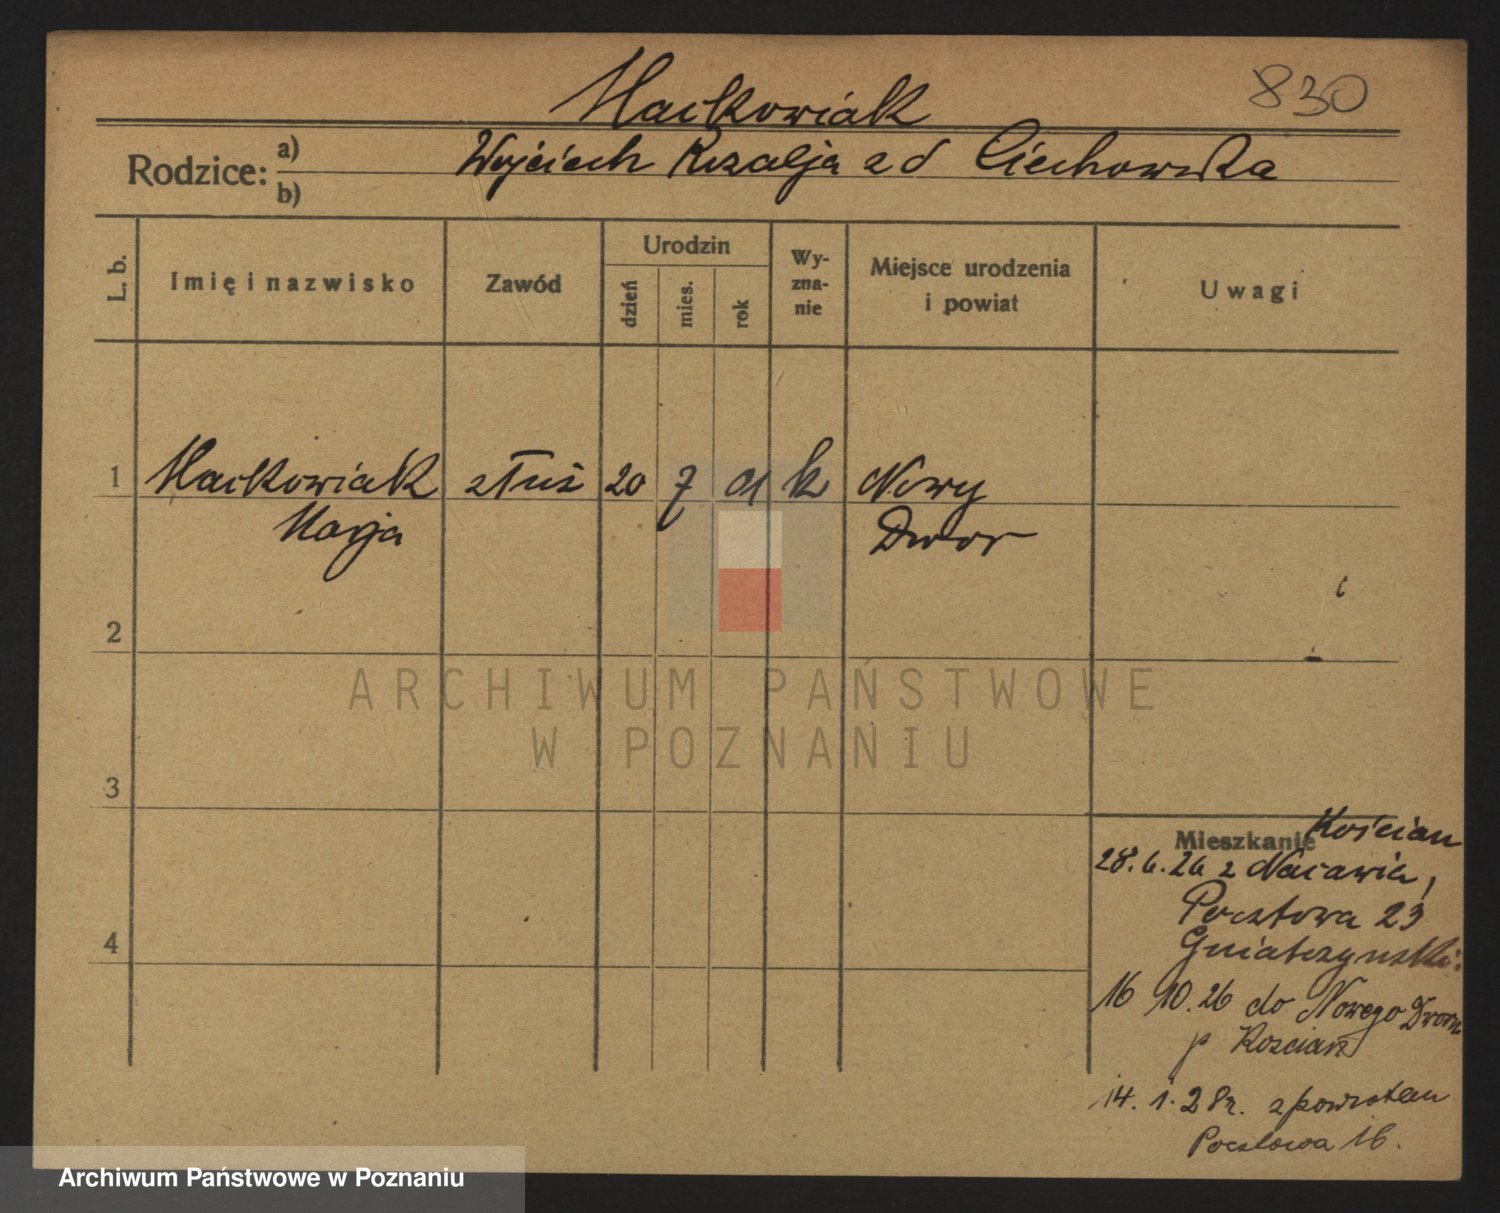 Maćkowiak
830
Rodzice: a) Wojciech Rozalja z d Ciechowska
b)
L. b.
Imię i nazwisko
Zawód
Urodzin
dzień
mies.
rok
Wy-
zna-
nie
Miejsce urodzenia
i powiat
Uwagi
1 Maćkowiak służ 20 7 01 k Nowy
Marja Dwór
2
3
4
Mieszkanie Kościan
28.6.26 z
Pocztowa 23
16 10.26 do Nowego Dworu
p Kościan
14. 1. 28r. z powrotem
Pocztowa 16.
ARCHIWUM PAŃSTWOWE
W POZNANIU
Archiwum Państwowe w Poznaniu